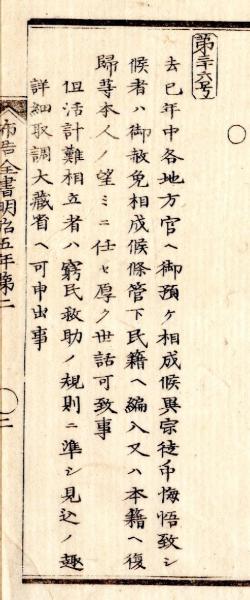 第三十六号
去巳年中各地方官ヘ御預ケ相成候異宗徒中悔悟致シ
候者ハ御赦免相成候條管下民籍ヘ編入又ハ本籍ヘ復
歸等本人ノ望ミニ任セ厚ク世話可致事
但活計難相立者ハ窮民救助ノ規則ニ準シ見込ノ趣
詳細取調大藏省ヘ可申出事
布告全書明治五年第二
二